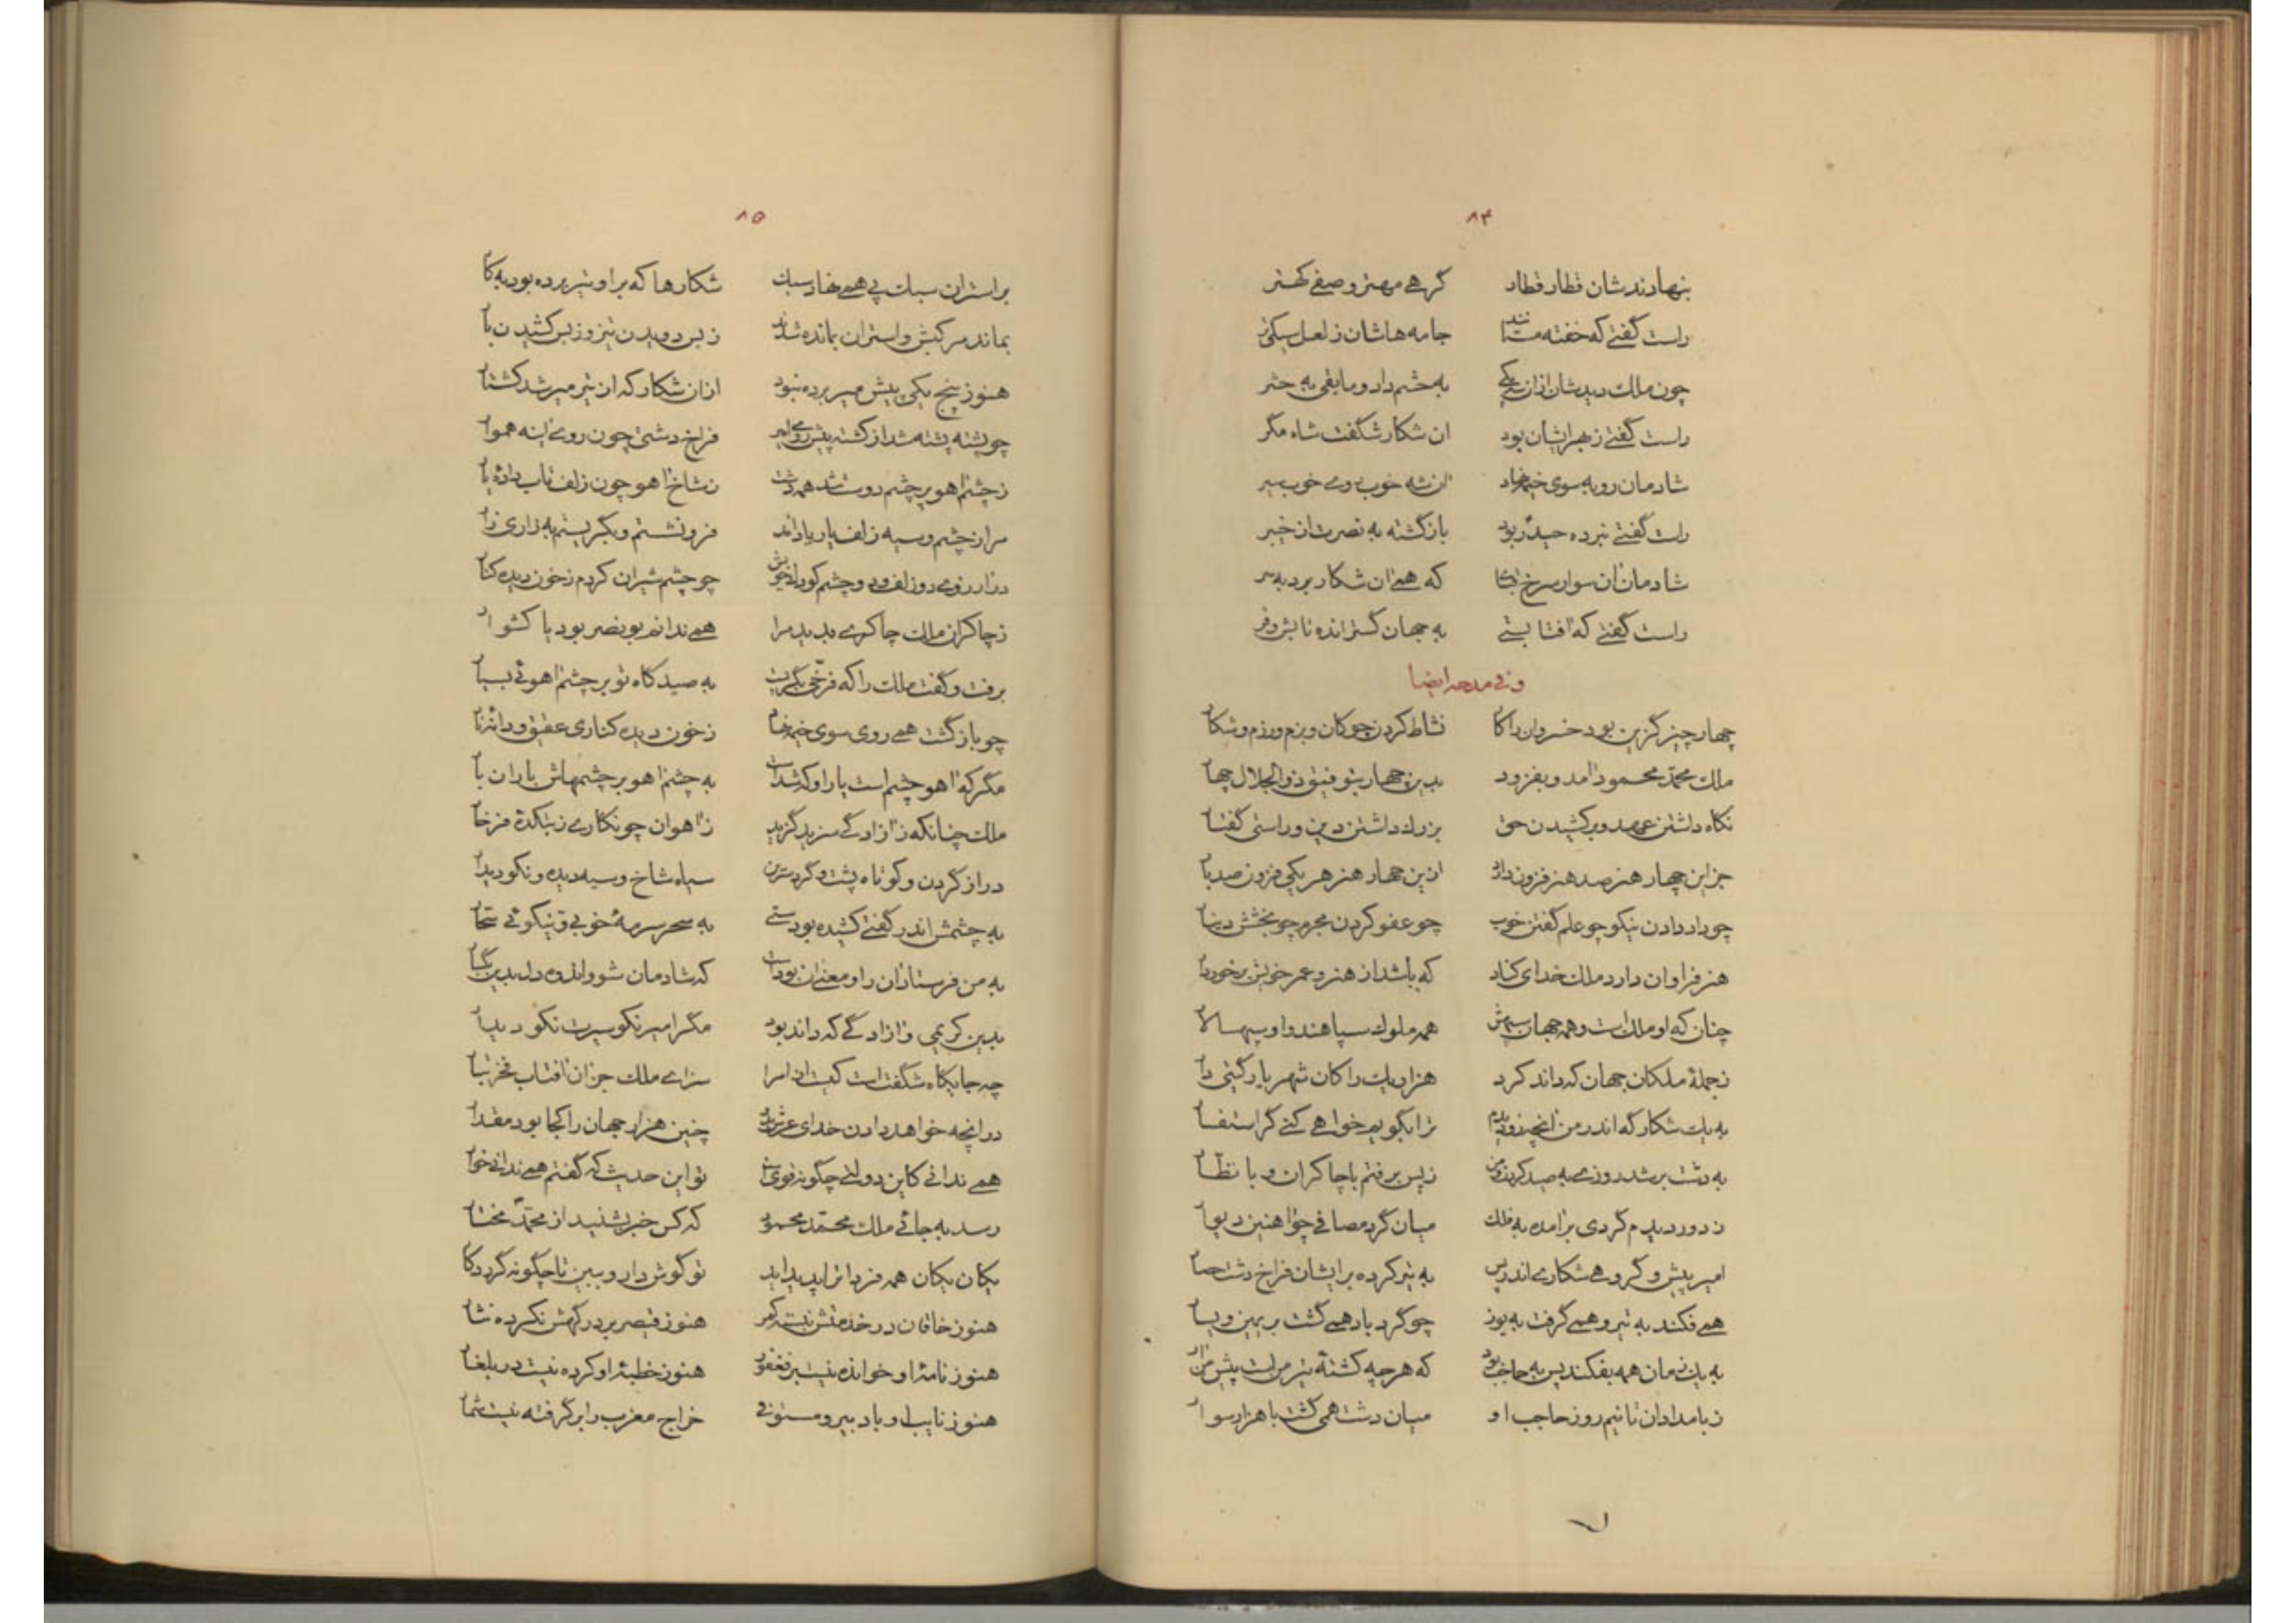 ۸۴
بنهادند شان قطار قطار گرهی مهتر و صفی کهتر
راست گفتی که خفته مستانند جامه هاشان ز لعل سیکی تر
چون ملک دید شان ازان سه یکی به حشم داد و مابقی به حشر
راست گفتی ز بهر ایشان بود ان شکار شگفت شاه مگر
شادمان رو به سوی خیمه نهاد ان شه خوب روی خوب سیر
راست گفتی نبرده حیدر بود بازگشته به نصرت از خیبر
شادمان ان سوار سرخ که همی ان شکار برد به سر
راست گفتی که افتابستی به جهان گسترانده تابش و فر
و فی مدحه ایضا
چهار چیز گزین بود خسروان را کار نشاط کردن چوکان و بزم و رزم و شکار
ملک محمد محمود امد و بفزود بدین چهار بتوفیق ذوالجلال چهار
نکاه داشتن عهد و برکشیدن حق بزرک داشتن دین و راستی گفتار
جز این چهار هنر صد هنر فزون دارد ازین چهار هنر هر یکی فزون صد بار
چو داد دادن نیکو چو علم گفتن خوب چو عفو کردن مجرم چو بخشش دینار
هنر فراوان دارد ملک خدای کناد که باشد از هنر و عمر خویش برخوردار
چنان که او ملک است و همه جهان سپهش همه ملوک سپاهند و او سپهسالار
ز جملهٔ ملکان جهان که داند کرد هزار یک زا کان شهریار گیتی دار
به یک شکار که اندر من انچه زو دیدم ترا بگویم خواهی کنی گر استفسار
به دشت بر شد روزی به صید کردن و من ز پس برفتم با چاکران و با نظار
ز دور دیدم گردی برامده به فلک میان گرد مصافی چو اهنین دیوار
امیر پیش و گروهی شکاری اندر پس به تیر کرده بر ایشان فراخ دشت حصار
همی فکند به تیر و همی گرفت به یوز چو گرد باد همی گشت بر یمین و یسار
به یک زمان همه بفکند پس به حاجب بود که هر چه کشتهٔ تیر من است پیش من ار
ز بامدادان تا نیم روز حاجب او میان دشت همی گشت با هزار سوار
۸۵
بر استران سبک پی همی نهاد سبک شکارها که بر او تیر برده بود به کار
بماند مرکبش و استران بمانده شدند ز بس دویدن تیز و ز بس کشیدن بار
هنوز پنج یکی پیش میر برده نبود ازان شکار که از تیر میر شد کشتار
چو پشته پشته شد از کشته پیش روی امیر فراخ دشتی چون روی اینه هموار
ز چشم اهو پر چشم دوست شد همه دشت ز شاخ اهو چون زلف تاب دادهٔ یار
مرا ز چشم و سیه زلف یار یاد اند فرو نشستم و بگریستم به زاری زار
در ارزوی دو زلف و دو چشم کودک خویش چو چشم شیران کردم ز خون دیده کنار
ز چاکران ملک چاکری بدید مرا همی ندانم بو نصر بود یا کشوار
برفت و گفت ملک را که فرّخی بگریست به صید گاه تو بر چشم اهوئی بسیار
چو باز گشت همی روی سوی خیمه نهاد ز خون دیده کناری عقیق و دانهٔ نار
مگر که اهو چشم است یار او که شد است به چشم اهو بر چشمهاش باران بار
ملک چنانکه ز ازادگی سزید گزید ز اهوان چو نکاری ز بتکدهٔ فرخار
دراز گردن و کوتاه پشت و گرد سرین سیاه شاخ و سیه دیده و نکو دیدار
به چشمش اندر گفتی کشیده بودستی به سحر سرمهٔ خوبی و نیکوئی سحار
به من فرستاد ان را و معنی ان بود است که شادمان شو و اندوه دل بدین بگسار
بدین کریمی و ازادگی که داند بود مگر امیر نکو سیرت نکو دیدار
چه جایگاه شگفت است کیست از امرا سزای ملک جز ان افتاب فخر تبار
در انچه خواهد دادن خدای عرش بدو چنین هزار جهان را کجا بود مقدار
همی ندانی کاین دولتی چگونه قویست تو این حدیث که گفتم همی ندانی خوار
رسد به جائی ملک محمد محمود که کس خبر نشنید از محمد مختار
یکان یکان همه فردا ترا پدید اید تو گوش دار و ببین تا چگونه گردد کار
هنوز خاقان در خدمتش نبسته کمر هنوز قیصر بر درگهش نکرده نثار
هنوز نامهٔ او خوانده نیست بر فغفور هنوز خطبهٔ او کرده نیست در بلغار
هنوز نایب او با دبیر و مستوفی خراج مغرب را بر گرفته نیست شمار